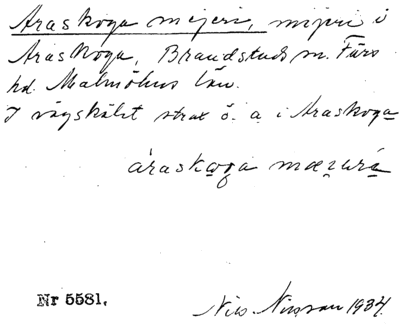 Araskoga mejeri, mejeri i
Araskoga, Brandstads sn. Färs
hd. Malmöhus län.
I vägskälet strax ö. a i Araskoga
áraskǫga
Nr 5581.
Nils Nilsson 1934.